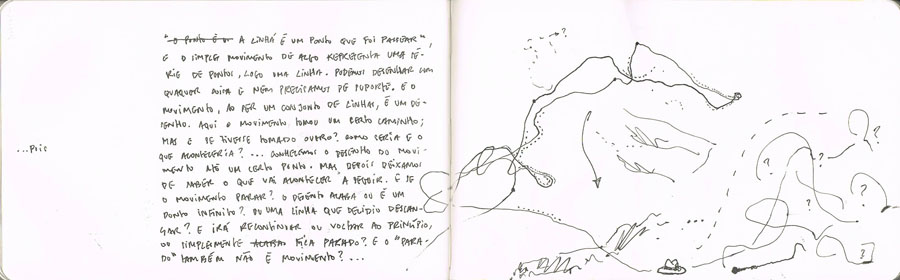 "o ponto é o A LINHA É UM PONTO QUE FOI PASSEAR"
E O SIMPLES MOVIMENTO DE ALGO REPRESENTA UMA SÉ-
RIE DE PONTOS, LOGO UMA LINHA. PODEMOS DESENHAR COM
QUALQUER COISA E NEM PRECISAMOS DE SUPORTE. E O
MOVIMENTO, AO SER UM CONJUNTO DE LINHAS, É UM DE-
SENHO. AQUI O MOVIMENTO TOMOU UM CERTO CAMINHO;
MAS E SE TIVESSE TOMADO OUTRO? COMO SERIA E O
QUE ACONTECERIA? ... CONHECEMOS O DESENHO DO MOVI-
MENTO ATÉ UM CERTO PONTO. MAS DEPOIS DEIXAMOS
...Pois
DE SABER O QUE VAI ACONTECER A SEGUIR. E SE
O MOVIMENTO PARAR? O DESENHO ACABA OU É UM
PONTO INFINITO? OU UMA LINHA QUE DECIDIU DESCAN-
SAR? E IRÁ RECONTINUAR OU VOLTAR AO PRINCÍPIO,
OU SIMPLESMENTE ACABA FICA PARADO? E O "PARA-
DO" TAMBÉM NÃO É MOVIMENTO? ...
?
?
?
?
?
?